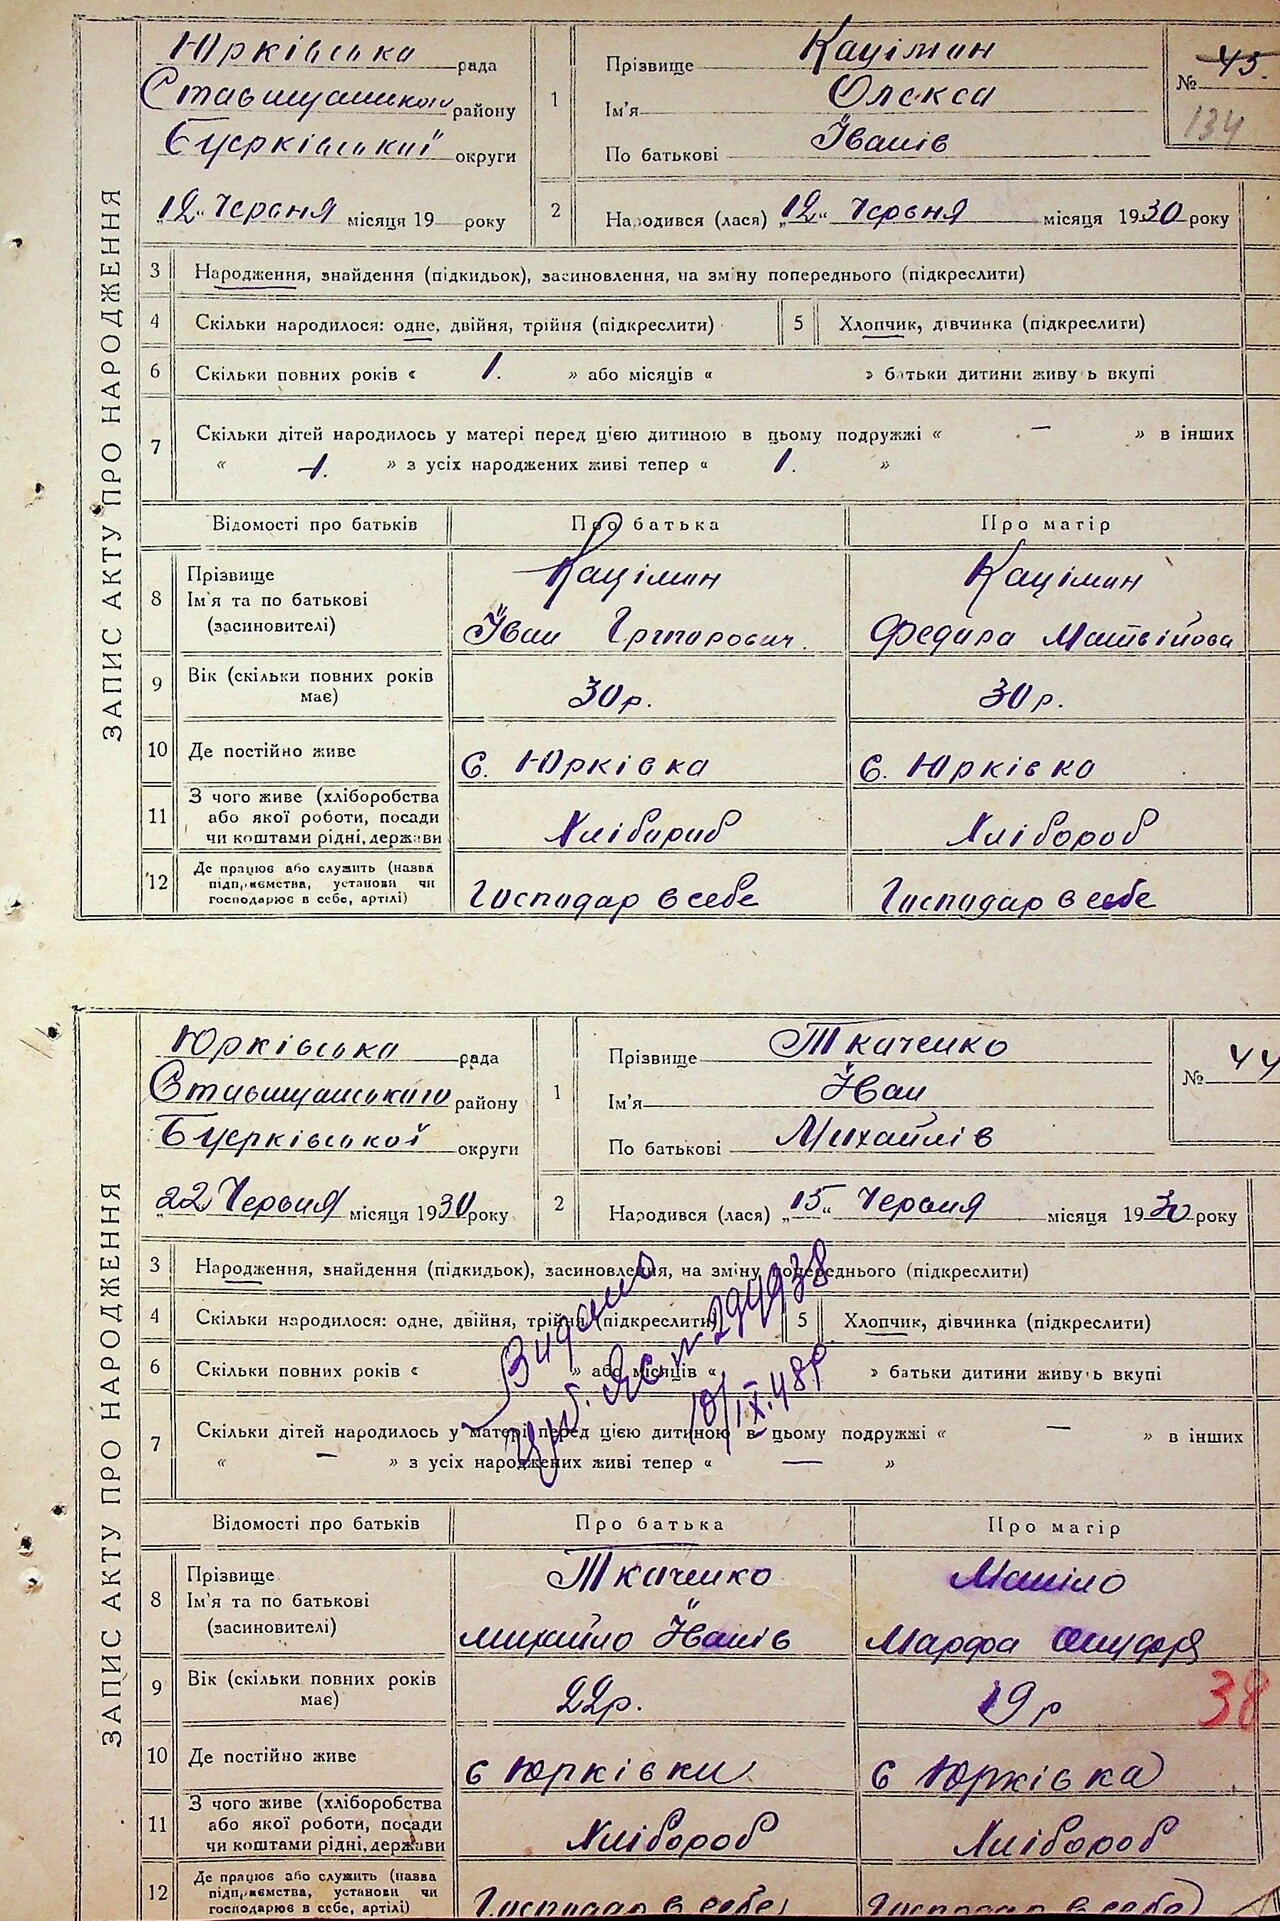 ЗАПИС АКТУ ПРО НАРОДЖЕННЯ
Юрківська рада
Ставищанського району
Білоцерківської округи
„12“ Червня місяця 19 року
1
Прізвище Кацімон
Ім'я Олекса
По батькові Іванів
№ 43.
134
2
Народився (лася) „12“ Червня місяця 1930 року
3 Народження, знайдення (підкидьок), засиновлення, на зміну попереднього (підкреслити)
4 Скільки народилося: одне, двійня, трійня (підкреслити) 5 Хлопчик, дівчинка (підкреслити)
6 Скільки повних років « 1. » або місяців « » батьки дитини живу ь вкупі
7 Скільки дітей народилось у матері перед цією дитиною в цьому подружжі « — » в інших
« 1. » з усіх народжених живі тепер « 1. »
Відомості про батьків Про батька Про матір
8 Прізвище
Ім'я та по батькові
(засиновителі)
Кацімон
Іван Григорович.
Кацімон
Федора Матвійова
9 Вік (скільки повних років має) 30 р. 30 р.
10 Де постійно живе с. Юрківка с. Юрківка
11 З чого живе (хліборобства
або якої роботи, посади
чи коштами рідні, держави
Хлібороб Хлібороб
12 Де працює або служить (назва
підприємства, установи чи
господарює в себе, артілі)
Господар в себе Господар в себе
ЗАПИС АКТУ ПРО НАРОДЖЕННЯ
Юрківська рада
Ставищанського району
округи
„22 Червня місяця 1930 року
1
Прізвище Ткаченко
Ім'я Іван
По батькові Михайлів
№ 44
2
Народився (лася) „15“ Червня місяця 1930 року
3 Народження, знайдення (підкидьок), засиновлення, на зміну попереднього (підкреслити)
4 Скільки народилося: одне, двійня, трійня (підкреслити) 5 Хлопчик, дівчинка (підкреслити)
6 Скільки повних років « » або місяців « » батьки дитини живу ь вкупі
Видано
ЯС № 294938
10/IX.48р
7 Скільки дітей народилось у матері перед цією дитиною в цьому подружжі « — » в інших
« — » з усіх народжених живі тепер « — »
Відомості про батьків Про батька Про матір
8 Прізвище
Ім'я та по батькові
(засиновителі)
Ткаченко
Михайло Іванів
Марфа
9 Вік (скільки повних років має) 22 р. 19 р
38
10 Де постійно живе с Юрківки с Юрківка
11 З чого живе (хліборобства
або якої роботи, посади
чи коштами рідні, держави
Хлібороб Хлібороб
12 Де працює або служить (назва
підприємства, установи чи
господарює в себе, артілі)
Господар в себе Господар в себе